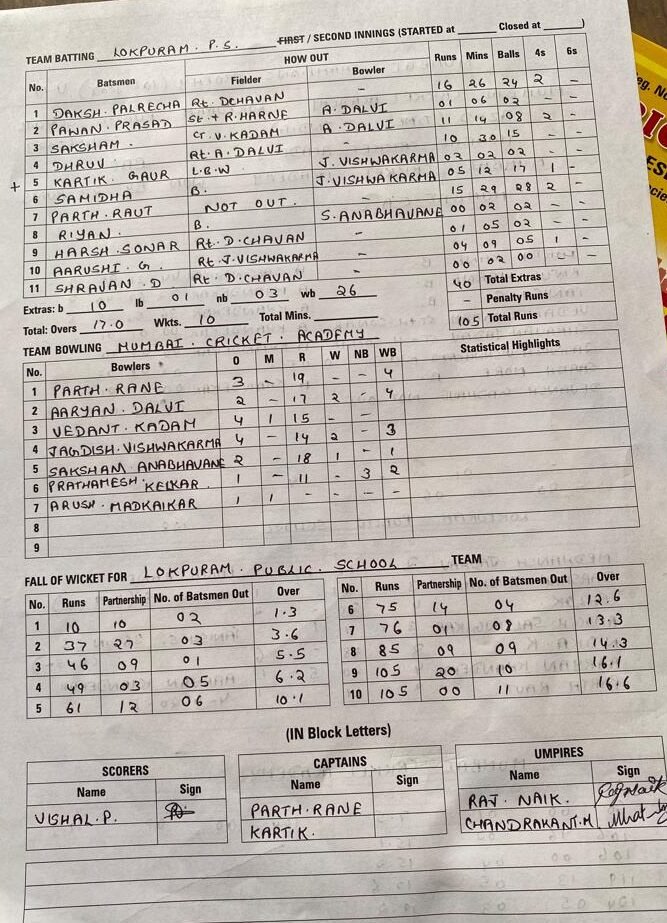 TEAM BATTING LOKPURAM. P.S. FIRST / SECOND INNINGS (STARTED at ____ Closed at ____)
No. Batsmen HOW OUT Runs Mins Balls 4s 6s
Fielder Bowler
1 DAKSH. PALRECHA Rt. D CHAVAN - 16 26 24 2 -
2 PAWAN. PRASAD St + R. HARNE A. DALVI 01 06 02 - -
3 SAKSHAM. Cr. V. KADAM A. DALVI 11 14 08 2 -
4 DHRUV. Rt. A. DALVI - 10 30 15 - -
+ 5 KARTIK. GAUR L.B.W J. VISHWAKARMA 02 02 02 - -
6 SAMIDHA B. J. VISHWAKARMA 05 12 17 1 -
7 PARTH. RAUT NOT OUT. - 15 29 28 2 -
8 RIYAN. B. S. ANABHAVANE 00 02 02 - -
9 HARSH. SONAR Rt. D. CHAVAN - 01 05 02 - -
10 AARUSHI. G. Rt. J. VISHWAKARMA - 04 09 05 1 -
11 SHRAVAN. D Rt. D. CHAVAN - 00 02 00 - -
Extras: b 10 lb 01 nb 03 wb 26 40 Total Extras
- Penalty Runs
Total: Overs 17.0 Wkts. 10 Total Mins. 105 Total Runs
TEAM BOWLING MUMBAI. CRICKET. ACADEMY
No. Bowlers O M R W NB WB Statistical Highlights
1 PARTH. RANE 3 - 19 - - 4
2 AARYAN. DALVI 2 - 17 2 - 4
3 VEDANT. KADAM 4 1 15 - -
4 JAGDISH. VISHWAKARMA 4 - 14 2 - 3
5 SAKSHAM. ANABHAVANE 2 - 18 1 - 1
6 PRATHAMESH. KELKAR. 1 - 11 - 3 2
7 ARUSH. MADKAIKAR 1 1 - - - -
8
9
FALL OF WICKET FOR LOKPURAM. PUBLIC. SCHOOL TEAM
No. Runs Partnership No. of Batsmen Out Over
1 10 10 02 1.3
2 37 27 03 3.6
3 46 09 01 5.5
4 49 03 05 6.2
5 61 12 06 10.1
No. Runs Partnership No. of Batsmen Out Over
6 75 14 04 12.6
7 76 01 08 13.3
8 85 09 09 14.3
9 105 20 10 16.1
10 105 00 11 16.6
(IN Block Letters)
SCORERS
Name Sign
VISHAL. P.
CAPTAINS
Name Sign
PARTH. RANE
KARTIK.
UMPIRES
Name Sign
RAJ. NAIK.
CHANDRAKANT. M